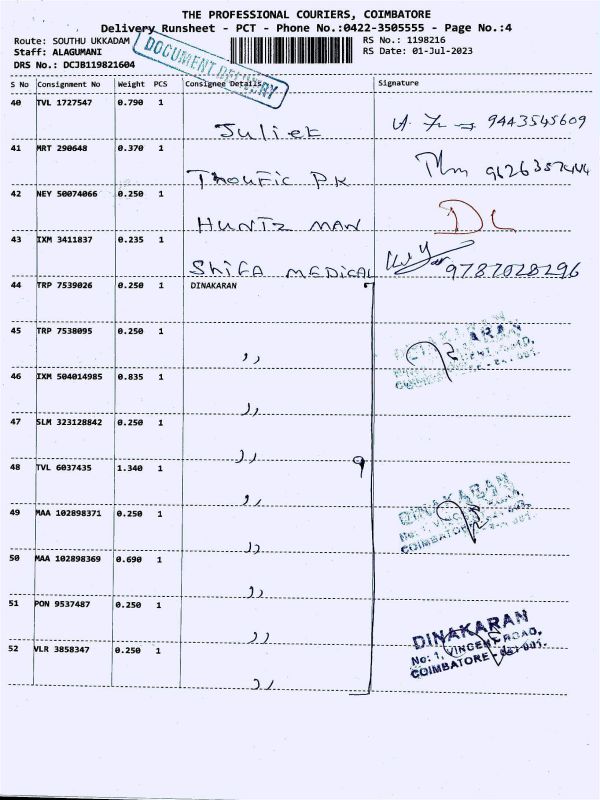 THE PROFESSIONAL COURIERS, COIMBATORE
Delivery Runsheet - PCT - Phone No.:0422-3505555 - Page No.:4
Route: SOUTHU UKKADAM
RS No.: 1198216
Staff: ALAGUMANI
RS Date: 01-Jul-2023
DRS No.: DCJB119821604
DOCUMENT DELIVERY
S No Consignment No Weight PCS Consignee Details Signature
40 TVL 1727547 0.790 1
Juliet 9443545609
41 MRT 290648 0.370 1
Thoufic PK
42 NEY 50074066 0.250 1
HUNTZ MAN DL
43 IXM 3411837 0.235 1
Shifa MEDICAL 9787028296
44 TRP 7539026 0.250 1 DINAKARAN
45 TRP 7538095 0.250 1
,,
DINAKARAN
46 IXM 504014985 0.835 1
,,
47 SLM 323128842 0.250 1
,,
48 TVL 6037435 1.340 1
,,
DINAKARAN
49 MAA 102898371 0.250 1
,,
COIMBATORE
50 MAA 102898369 0.690 1
,,
51 PON 9537487 0.250 1
,,
DINAKARAN
No: 1, VINCENT ROAD,
COIMBATORE - 641 001.
52 VLR 3858347 0.250 1
,,